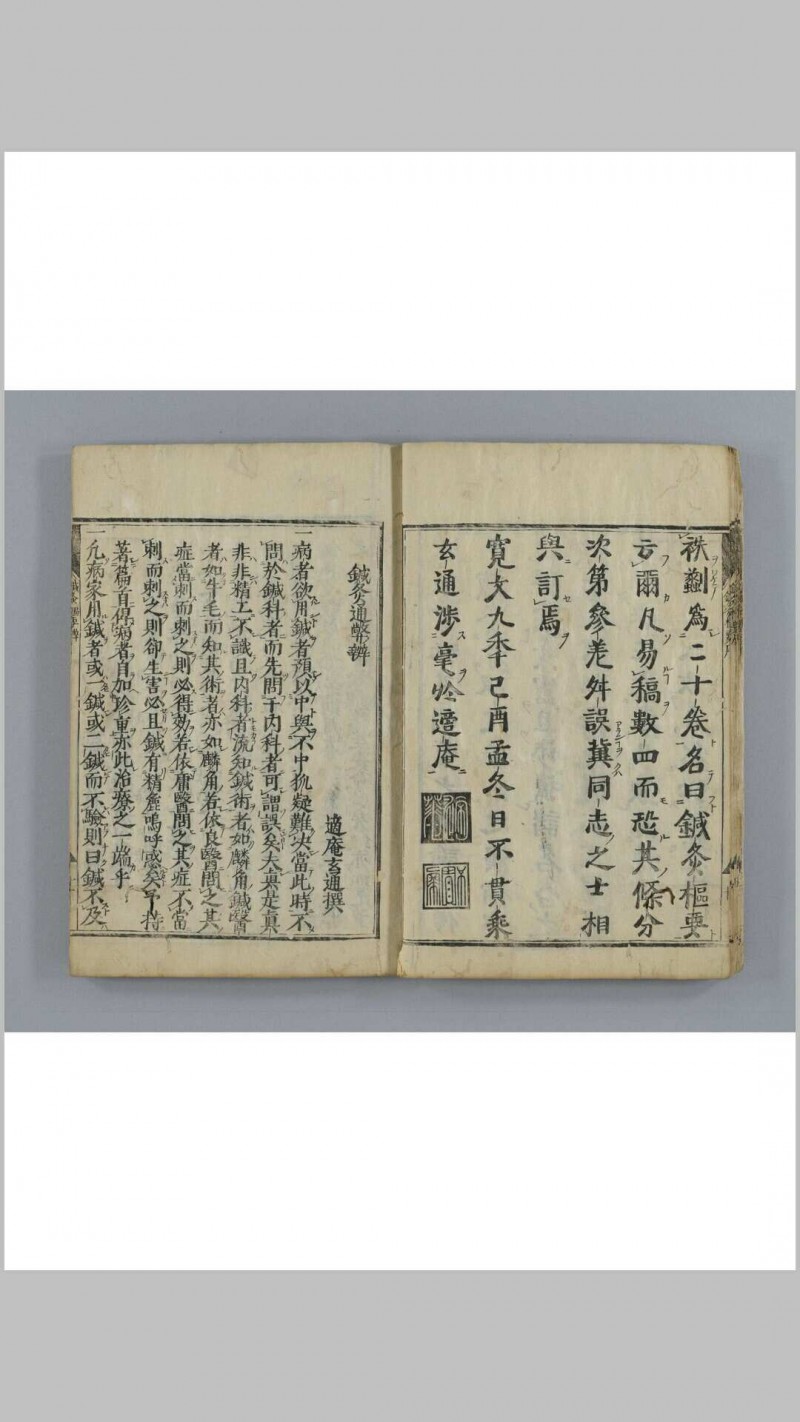 袟劃爲二十卷名曰鍼灸樞要
云爾凡易稿數四而恐其條分
次第參差舛誤冀同志之士相
與訂焉
寛文九秊己酉孟冬日不貫乘
玄通渉毫於適庵
鍼灸通弊辨
適庵玄通撰
一病者欲用鍼者預以中與不中狐疑難决當此時不
問於鍼科者而先問于内科者可謂誤矣夫眞是眞
非非精工不識且内科者流知鍼術者如麟角鍼醫
者如牛毛而知其術者亦如麟角若依良醫問之其
症當刺而刺之則必得効若依庸醫問之其症不當
刺而刺之則卻生害必且鍼有精麄嗚呼惑矣予特
著篇首俾病者自加珍重亦此治療之一端乎
一凡病家用鍼者或一鍼或二鍼而不驗則曰鍼不及